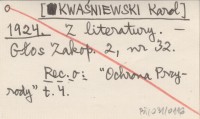 [KWAŚNIEWSKI Karol]
1924. Z literatury. —
Głos Zakop. 2, nr 32.
Rec. o: "Ochrona Przy-
rody" t. 4.